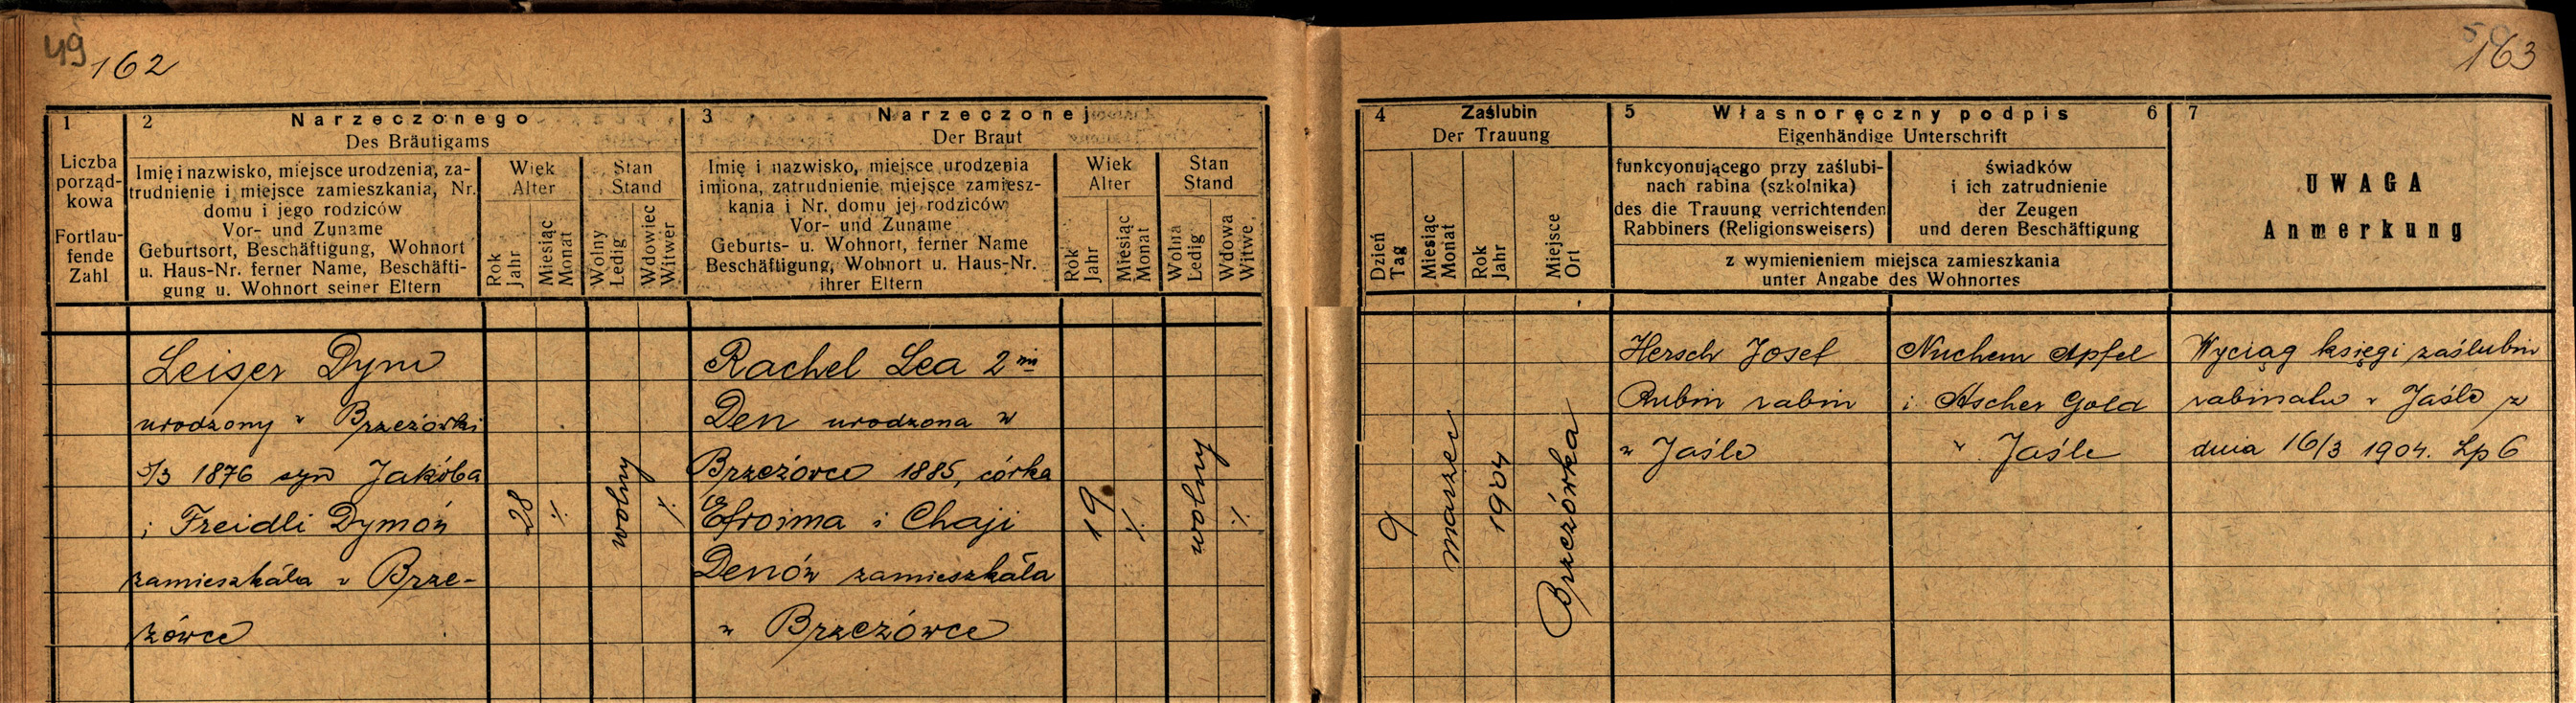 49
162
163
1
2 Narzeczonego
Des Bräutigams
3 Narzeczonej
Der Braut
4 Zaślubin
Der Trauung
5 Własnoręczny podpis 6
Eigenhändige Unterschrift
7
Liczba
porząd-
kowa
Fortlau-
fende
Zahl
Imię i nazwisko, miejsce urodzenia, za-
trudnienie i miejsce zamieszkania, Nr.
domu i jego rodziców
Vor- und Zuname
Geburtsort, Beschäftigung, Wohnort
u. Haus-Nr. ferner Name, Beschäfti-
gung u. Wohnort seiner Eltern
Wiek
Alter
Rok
Jahr
Miesiąc
Monat
Stan
Stand
Wolny
Ledig
Wdowiec
Witwer
Imię i nazwisko, miejsce urodzenia
imiona, zatrudnienie miejsce zamiesz-
kania i Nr. domu jej rodziców
Vor- und Zuname
Geburts- u. Wohnort, ferner Name
Beschäftigung, Wohnort u. Haus-Nr.
ihrer Eltern
Wiek
Alter
Rok
Jahr
Miesiąc
Monat
Stan
Stand
Wolna
Ledig
Wdowa
Witwe
Dzień
Tag
Miesiąc
Monat
Rok
Jahr
Miejsce
Ort
funkcyonującego przy zaślubi-
nach rabina (szkolnika)
des die Trauung verrichtenden
Rabbiners (Religionsweisers)
świadków
i ich zatrudnienie
der Zeugen
und deren Beschäftigung
z wymienieniem miejsca zamieszkania
unter Angabe des Wohnortes
UWAGA
Anmerkung
Leiser Dym
urodzony w Brzezówki
5/3 1876 syn Jakóba
i Freidli Dymów
zamieszkała w Brze-
zówce
28
./.
wolny
./.
Rachel Lea 2 im
Den urodzona w
Brzezówce 1885, córka
Efroima i Chaji
Denów zamieszkała
w Brzezówce
19
./.
wolny
./.
9
marzec
1904
Brzezówka
Hersch Josef
Rubin rabin
w Jaśle
Nuchem Apfel
i Ascher Gold
w Jaśle
Wyciąg księgi zaślubin
rabinatu w Jaśle z
dnia 16/3 1904. Lp 6